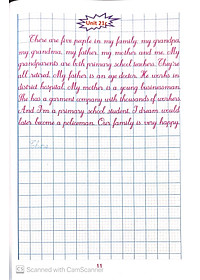 Unit 21
There are five people in my family, my grandpa,
my grandma, my father, my mother and me. My
grandparents are both primary school teachers. They're
all retired. My father is an eye doctor. He works in
district hospital. My mother is a young businessman.
She has a garment company with thousands of workers.
And I'm a primary school student. I dream would
later become a policeman. Our family is very happy.
11
Scanned with CamScanner